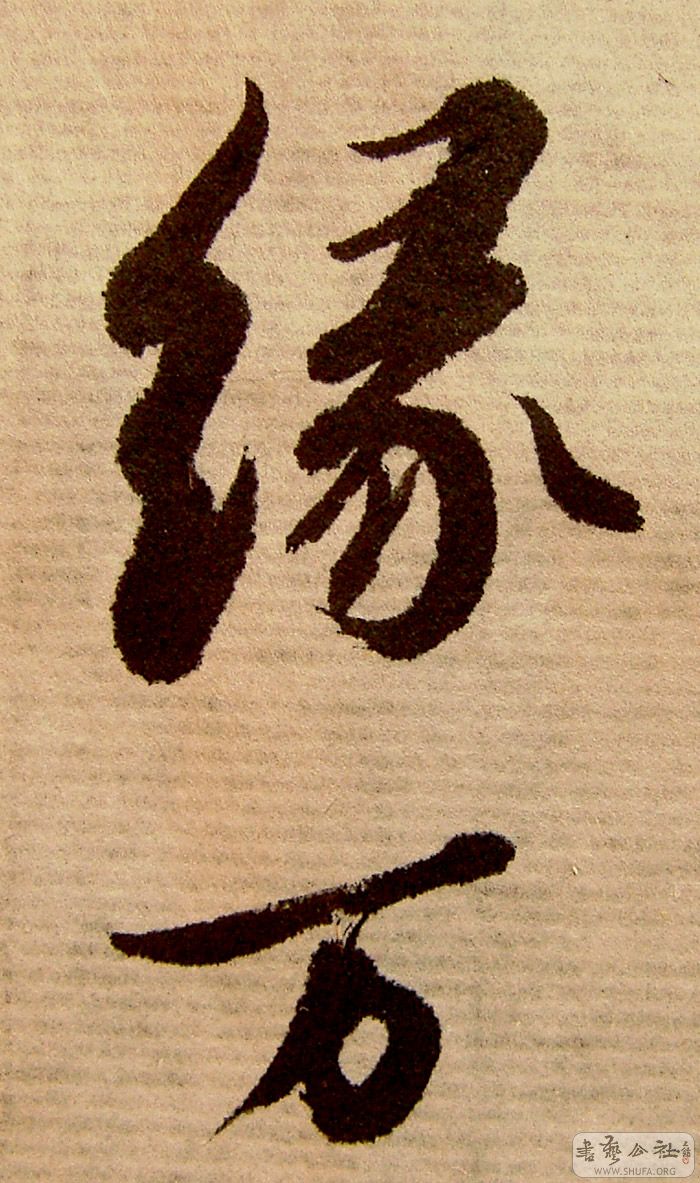 缘万
書藝公社
WWW.SHUFA.ORG